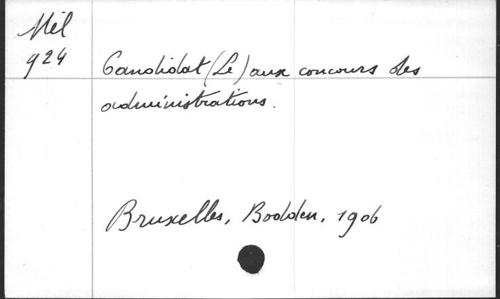 Mél
924
Candidat (Le) aux concours des
administrations.
Bruxelles, Bodden, 1906